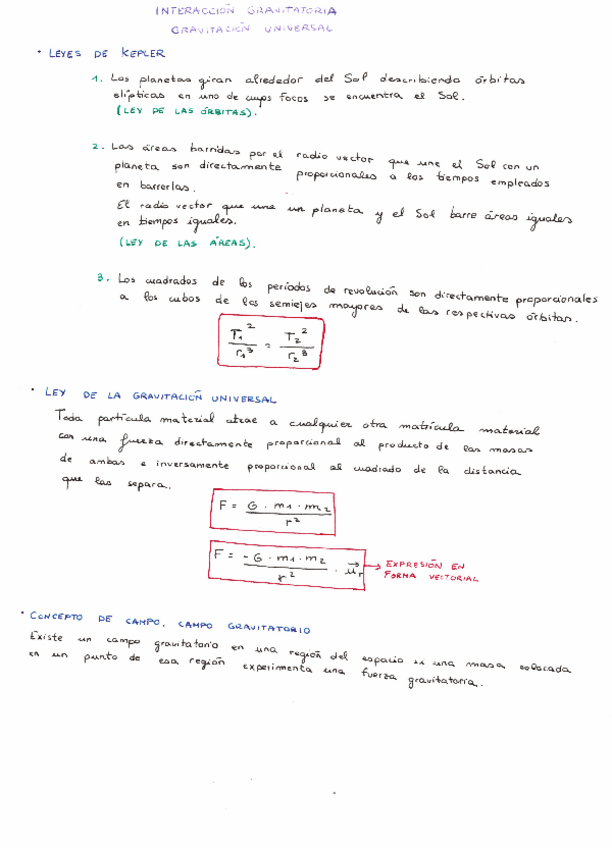 INTERACCIÓN GRAVITATORIA
GRAVITACIÓN UNIVERSAL
· LEYES DE KEPLER
1. Los planetas giran alrededor del Sol describiendo órbitas
elípticas en uno de cuyos focos se encuentra el Sol.
(LEY DE LAS ÓRBITAS).
2. Las áreas barridas por el radio vector que une el Sol con un
planeta son directamente proporcionales a los tiempos empleados
en barrerlas.
El radio vector que une un planeta y el Sol barre áreas iguales
en tiempos iguales.
(LEY DE LAS ÁREAS).
3. Los cuadrados de los períodos de revolución son directamente proporcionales
a los cubos de los semiejes mayores de las respectivas órbitas.
T₁²/r₁³ = T₂²/r₂³
· LEY DE LA GRAVITACIÓN UNIVERSAL
Toda partícula material atrae a cualquier otra matrícula material
con una fuerza directamente proporcional al producto de las masas
de ambas e inversamente proporcional al cuadrado de la distancia
que las separa.
F = G · m₁ · m₂ / r²
F = -G · m₁ · m₂ / r² · u⃗r → EXPRESIÓN EN
FORMA VECTORIAL
· CONCEPTO DE CAMPO. CAMPO GRAVITATORIO
Existe un campo gravitatorio en una región del espacio si una masa colocada
en un punto de esa región experimenta una fuerza gravitatoria.